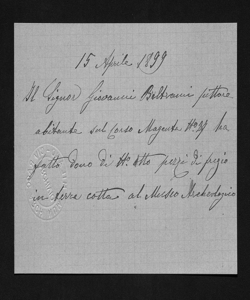 15 Aprile 1899
Il Signor Giovanni Beltrami pittore
abitante sul Corso Magenta N° 27 ha
fatto dono di N° otto pezzi di fregio
in terra cotta al Museo Archeologico